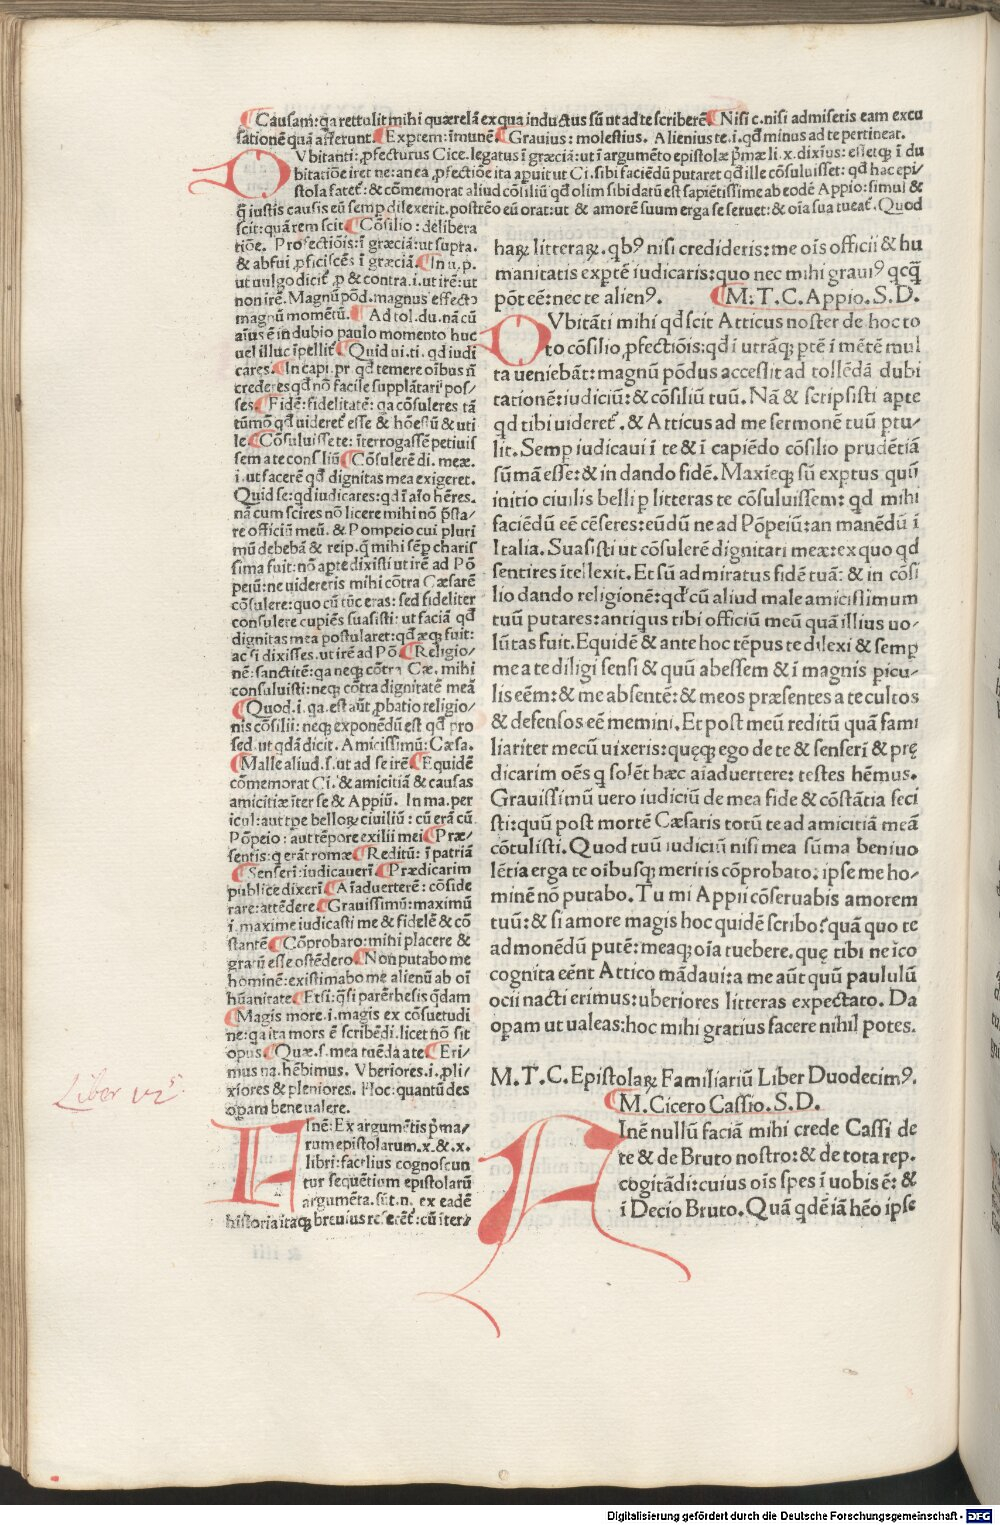 Causam: qa rettulit mihi quærelā ex qua inductus sū ut ad te scriberē. Nisi c. nisi admisetis eam excu
sationē quā afferunt. Exptem: īmunē. Grauius: molestius. Alienius te. i. qđ minus ad te pertineat.
Vbitanti: ꝓfecturus Cice. legatus ī græciā: ut ī argumēto epistolæ p̄mæ li. x. diximus: essetqꝫ ī du
bitatiōe iret ne: an ea ꝓfectiōe ita apuit ut Ci. sibi faciēdū putaret qđ ille cōsuluisset: qđ hac epi/
stola fatet᷑: & cōmemorat aliud cōsiliū qđ olim sibi datū est sapiētissime ab eodē Appio: simul &
q̄ iustis causis eū semp dilexerit. postrēo eū orat: ut & amorē suum erga se seruet: & oīa sua tueat᷑. Quod
scit: quā rem scit. Cōsilio: delibera
tiōe. Profectiōis: ī græciā: ut supra.
& abfui ꝓficiscēs ī græciā. In u. p.
ut uulgo dicit᷑ ꝓ & contra. i. ut irē: ut
non irē. Magnū pōd. magnus effectꝰ
magnū momētū. Ad tol. du. nā cū
aīus ē in dubio paulo momento huc
uel illuc īpellit᷑. Quid ui. ti. qđ iudi
cares. In capi. pr. qđ temere oībus n̄
crederes qđ nō facile supplātari pos/
ses. Fidē: fidelitatē: qa cōsuleres tā
tūmō qđ uideret᷑ esse & hōestū & uti
le. Cōsuluisse te: īterrogassē petiuis
sem a te consiliū. Cōsulerē di. meæ.
i. ut facerē qđ dignitas mea exigeret.
Quid se: qđ iudicares: qđ ī aīo hēres.
nā cum scires nō licere mihi nō p̄sta/
re officiū meū. & Pompeio cui pluri
mū debebā & reip. q̄ mihi sēp charis
sima fuit: nō apte dixisti ut irē ad Pō
peiū: ne uidereris mihi cōtra Cæsarē
cōsulere: quo cū tūc eras: sed fideliter
consulere cupiēs suasisti: ut faciā qđ
dignitas mea postularet: qđ æqꝫ fuit:
ac si dixisses. ut irē ad Pō. Religio/
nē: sanctitē: qa neqꝫ cōtra Cæ. mihi
consuluisti: neqꝫ cōtra dignitatē meā
Quod. i. qa. est aūt ꝓbatio religio/
nis cōsilii: neqꝫ exponēdū est qđ pro
sed. ut qdā dicit. Amicissimū: Cæsa.
Malle aliud. s. ut ad se irē. Equidē
cōmemorat Ci. & amicitiā & causas
amicitiæ īter se & Appiū. In ma. per
icul: aut tpe belloꝝ ciuiliū: cū erā cū
Pōpeio: aut tēpore exilii mei. Præ/
sentis: q erāt romæ. Reditū: ī patriā
Senserī: iudicauerī. Prædicarim
publice dixerī. Aīaduerterē: cōside
rare: attēdere. Grauissimū: maximū
i. maxime iudicasti me & fidelē & cō
stantē. Cōprobaro: mihi placere &
gratū esse ostēdero. Non putabo me
hominē: existimabo me alienū ab oī
hūanitate. Etsi: q̄si parēthesis qdam
Magis more. i. magis ex cōsuetudi
ne: qa ita mors ē scribēdi. licet nō sit
opus. Quæ. s. mea tuēda a te. Eri/
mus na. hēbimus. Vberiores. i. pli/
xiores & pleniores. Hoc: quantū des
opam bene ualere.
Inē: Ex argumētis p̄ma/
rum epistolarum. x. & .x.
libri: facelius cognoscun
tur sequētium epistolarū
argumēta. sūt. n. ex eadē
historia itaqꝫ breuius referēt᷑: cū iter/
haꝝ litteraꝝ. qbꝰ nisi credideris: me oīs officii & hu
manitatis exptē iudicaris: quo nec mihi grauiꝰ qcq̄
pōt eē: nec te alienꝰ. M. T. C. Appio. S. D.
Vbitāti mihi qđ scit Atticus noster de hoc to
to cōsilio ꝓfectiōis: qđ ī utrāqꝫ ptē ī mētē mul
ta ueniebāt: magnū pōdus accessit ad tollēdā dubi
tationē: iudiciū: & cōsiliū tuū. Nā & scripsisti apte
qđ tibi uideret᷑. & Atticus ad me sermonē tuū ptu/
lit. Semp iudicaui ī te & ī capiēdo cōsilio prudētiā
sūmā esse: & in dando fidē. Maxieqꝫ sū exptus quū
initio ciuilis belli p litteras te cōsuluissem: qđ mihi
faciēdū eē cēseres: eūdū ne ad Pōpeiū: an manēdū ī
Italia. Suasisti ut cōsulerē dignitati meæ: ex quo qđ
sentires ītellexit. Et sū admiratus fidē tuā: & in cōsi
lio dando religionē: qđ cū aliud male amicissimum
tuū putares: antiqus tibi officiū meū quā illius uo/
lūtas fuit. Equidē & ante hoc tēpus te dilexi & semp
me a te diligi sensi & quū abessem & ī magnis picu/
lis eēm: & me absentē: & meos præsentes a te cultos
& defensos eē memini. Et post meū reditū quā fami
liariter mecū uixeris: quęqꝫ ego de te & senserī & prę
dicarim oēs q solēt hæc aīaduertere: testes hēmus.
Grauissimū uero iudiciū de mea fide & cōstātia feci
sti: quū post mortē Cæsaris totū te ad amicitiā meā
cōtulisti. Quod tuū iudiciū nisi mea sūma beniuo
lētia erga te oībusqꝫ meritis cōprobato: ipse me ho/
minē nō putabo. Tu mi Appii cōseruabis amorem
tuū: & si amore magis hoc quidē scribo: quā quo te
admonēdū putē: meaqꝫ oīa tuebere. quę tibi ne īco
cognita eēnt Attico mādaui: a me aūt quū paululū
ocii nacti erimus: uberiores litteras expectato. Da
opam ut ualeas: hoc mihi gratius facere nihil potes.
M. T. C. Epistolaꝝ Familiariū Liber Duodecimꝰ.
M. Cicero Cassio. S. D.
Inē nullū faciā mihi crede Cassi de
te & de Bruto nostro: & de tota rep.
cogitādi: cuius oīs spes ī uobis ē: &
ī Decio Bruto. Quā qdē iā hēo ipse
Digitalisierung gefördert durch die Deutsche Forschungsgemeinschaft - DFG